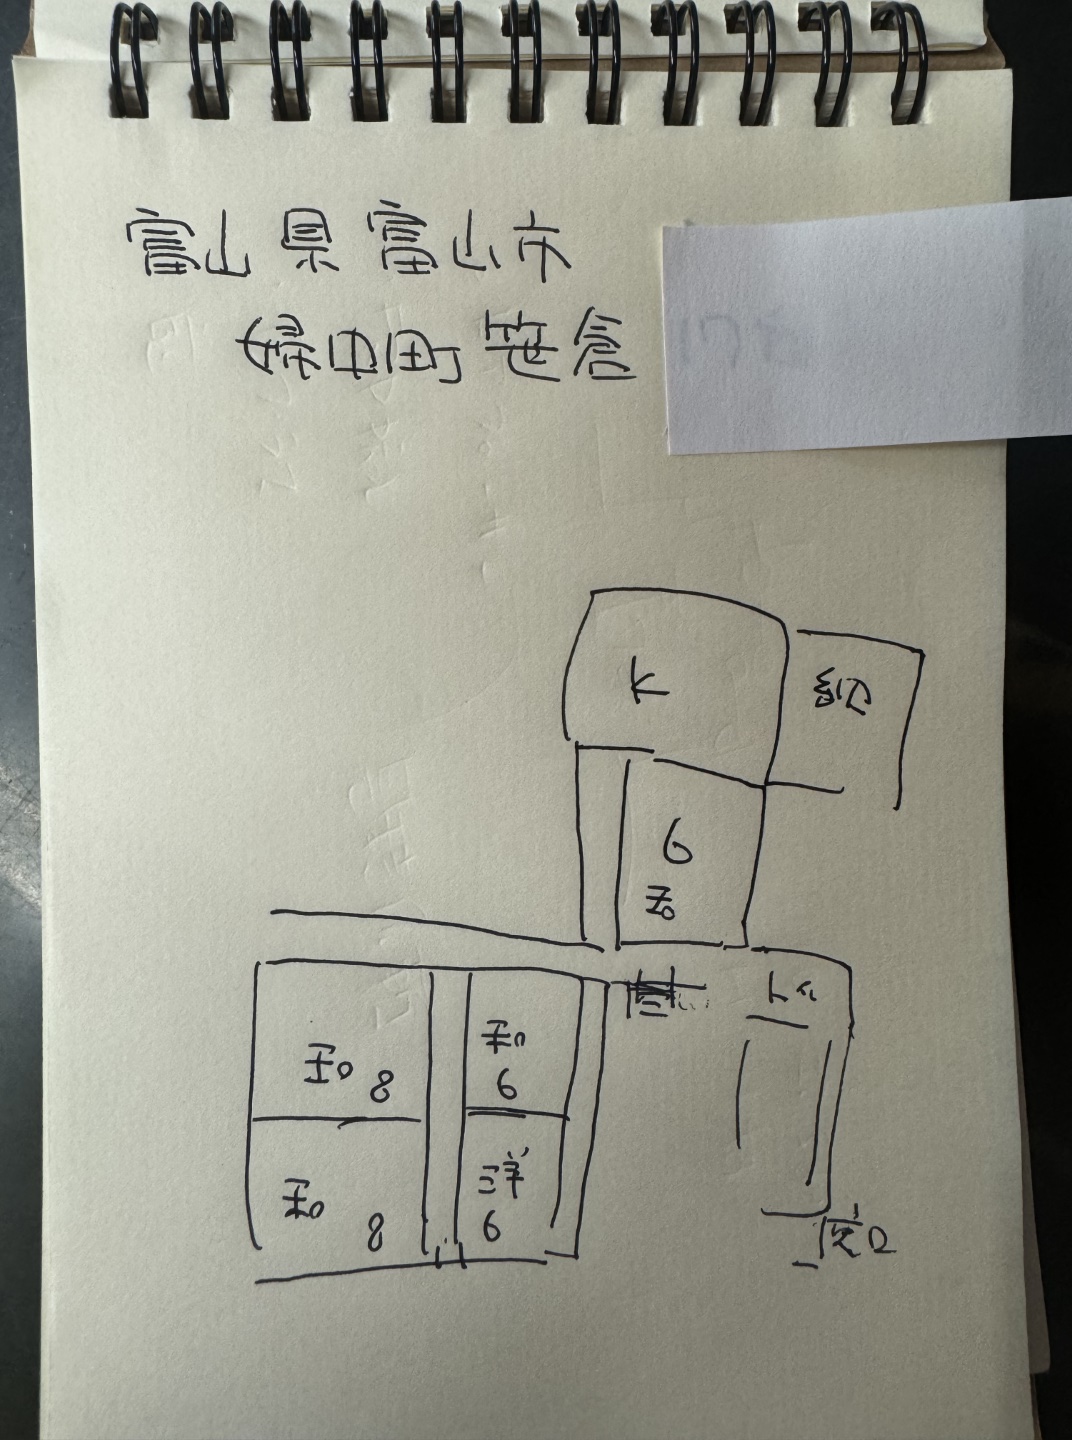 富山県富山市
婦中町笹倉
K
納
6
和
トイレ
和 8
和
6
和
8
洋
6
勝口